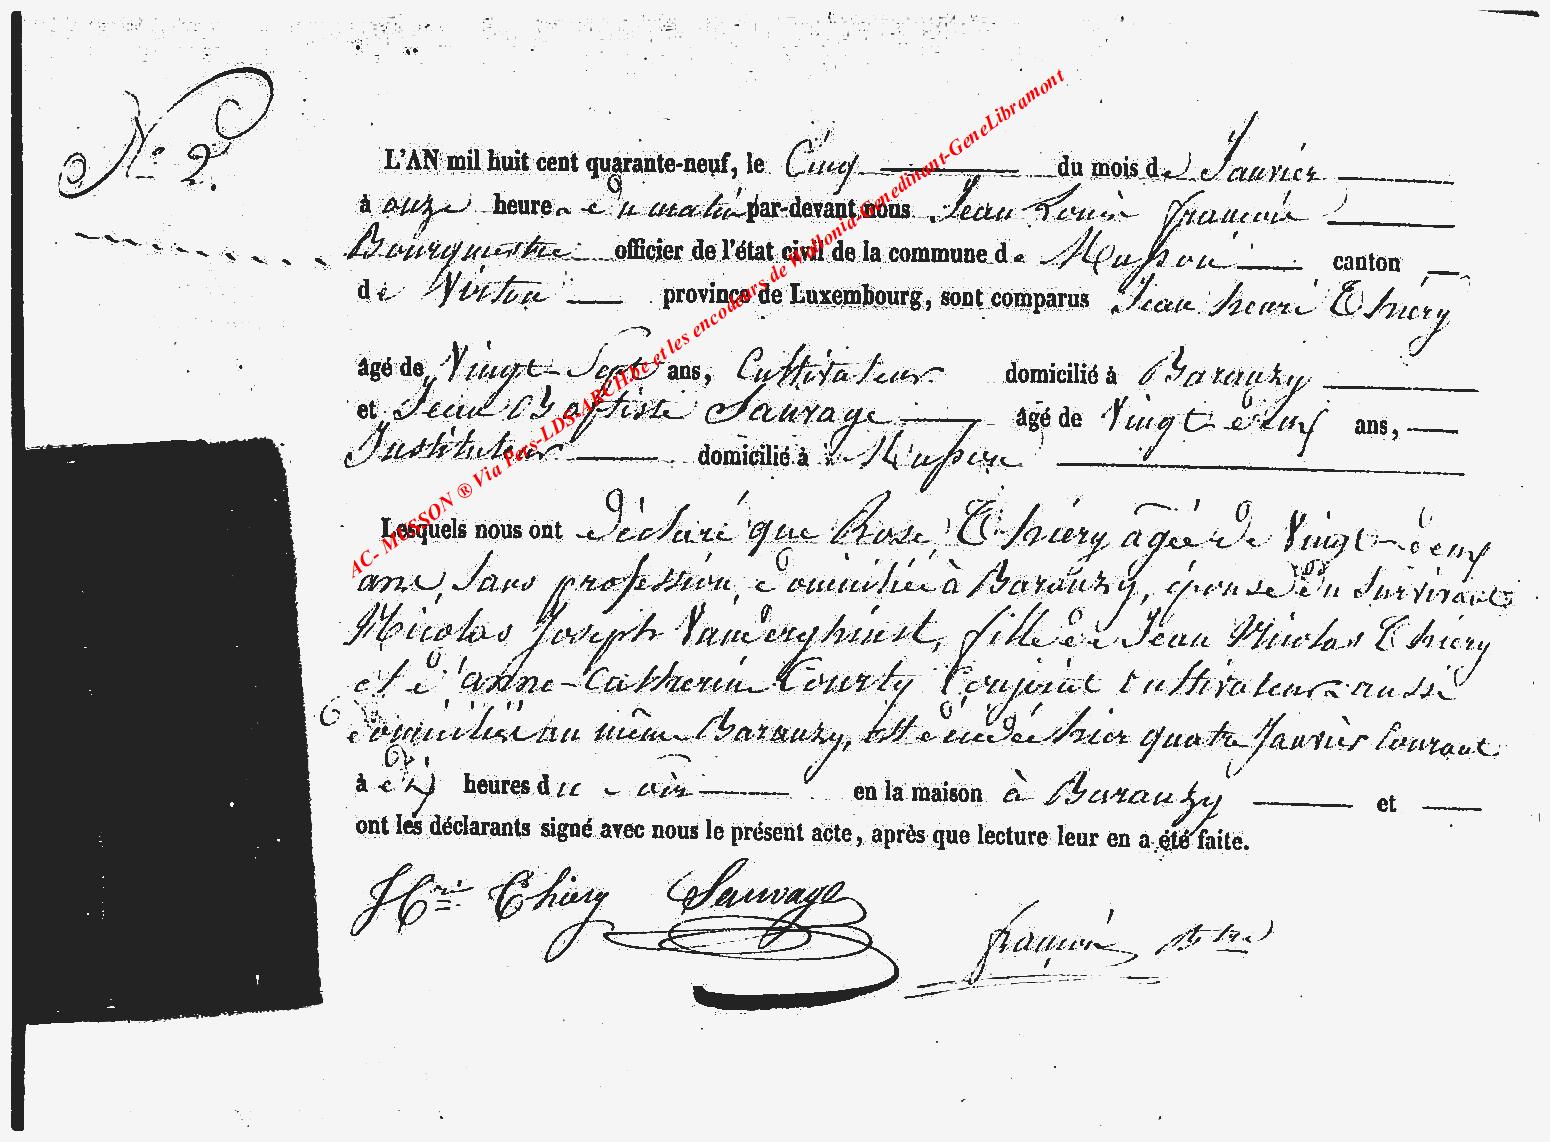 N.º 2.
L'AN mil huit cent quarante-neuf, le Cinq du mois de Janvier
à onze heures du matin par-devant nous Jean Louis François
Bourguestre officier de l'état civil de la commune de Musson canton
de Virton province de Luxembourg, sont comparus Jean henri Thiéry
âgé de Vingt-Sept ans, Cultivateur domicilié à Baranzy
et Jean Baptiste Sauvage âgé de Vingt deux ans,
Instituteur domicilié à Musson
Lesquels nous ont déclaré que Rose Thiéry agée de Vingt-deux
ans, sans profession, domiciliée à Baranzy, épouse du survivant
Nicolas Joseph Vanderghinst, fille de Jean Nicolas Thiery
et d'anne-Catherine Courty Conjoint Cultivateurs aussi
domiciliés au même Baranzy, est décédée hier quatre Janvier Courant
à dix heures du soir en la maison à Baranzy et
ont les déclarants signé avec nous le présent acte, après que lecture leur en a été faite.
Hri Thiery Sauvage
François Btre
AC- MUSSON ® Via Pers-LDS-ARCH.be et les encodeurs de Wallonia-Genedinant-GeneLibramont